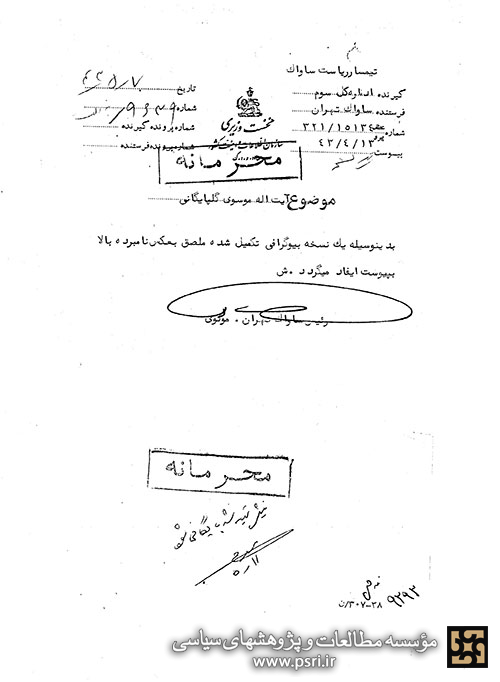 تیمسار ریاست ساواک
گیرنده اداره کل سوم
فرستنده ساواک تهران
شماره ۳۲۱/۱۵۱۳۴
۴۳/۴/۱۳
پیوست
نخست وزیری
سازمان اطلاعات و امنیت کشور
تاریخ ۴۳/۸/۷
شماره
شماره پرونده گیرنده
شماره پرونده فرستنده
محرمانه
موضوع آیت اله موسوی گلپایگانی
بدینوسیله یک نسخه بیوگرافی تکمیل شده ملصق بعکس نامبرده بالا
بپیوست ایفاد میگردد. ش
رئیس ساواک تهران. مولوی
محرمانه
بایگانی شود
۹۲۹۲
۳۰۷-۳۸/ن
مؤسسه مطالعات و پژوهشهای سیاسی
www.psri.ir